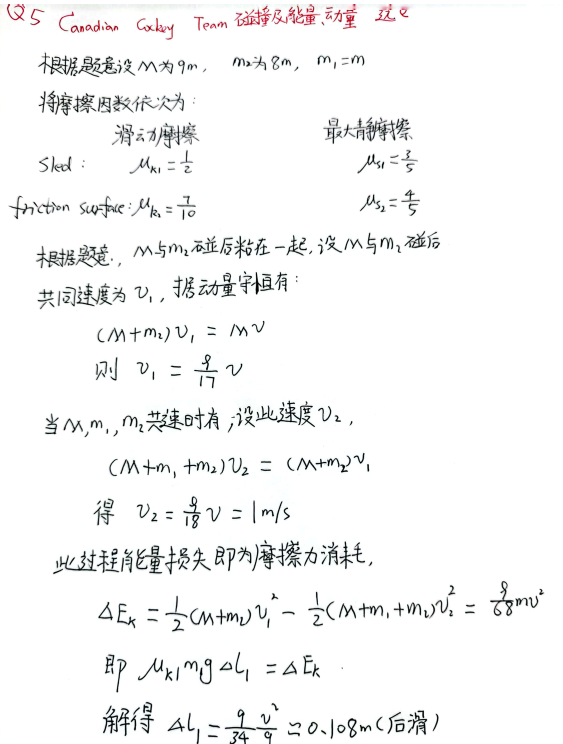 Q5 Canadian Cockey Team 碰撞及能量、动量
根据题意设 M为9m, m₂为8m, m₁=m
将摩擦因数依次为:
滑动摩擦 最大静摩擦
Sled: μk₁=1/2 μs₁=3/5
friction surface: μk₂=7/10 μs₂=4/5
根据题意, M与m₂碰后粘在一起, 设M与m₂碰后
共同速度为 v₁, 据动量守恒有:
(M+m₂)v₁ = Mv
则 v₁ = 9/17 v
当M, m₁, m₂共速时有, 设此速度v₂,
(M+m₁+m₂)v₂ = (M+m₂)v₁
得 v₂ = 9/18 v = 1m/s
此过程能量损失即为摩擦力消耗,
ΔEk = 1/2(M+m₂)v₁² - 1/2(M+m₁+m₂)v₂² = 9/68 mv²
即 μk₁m₁gΔL₁ = ΔEk.
解得 ΔL₁ = 9/34 v²/g ≈ 0.108m(后滑)